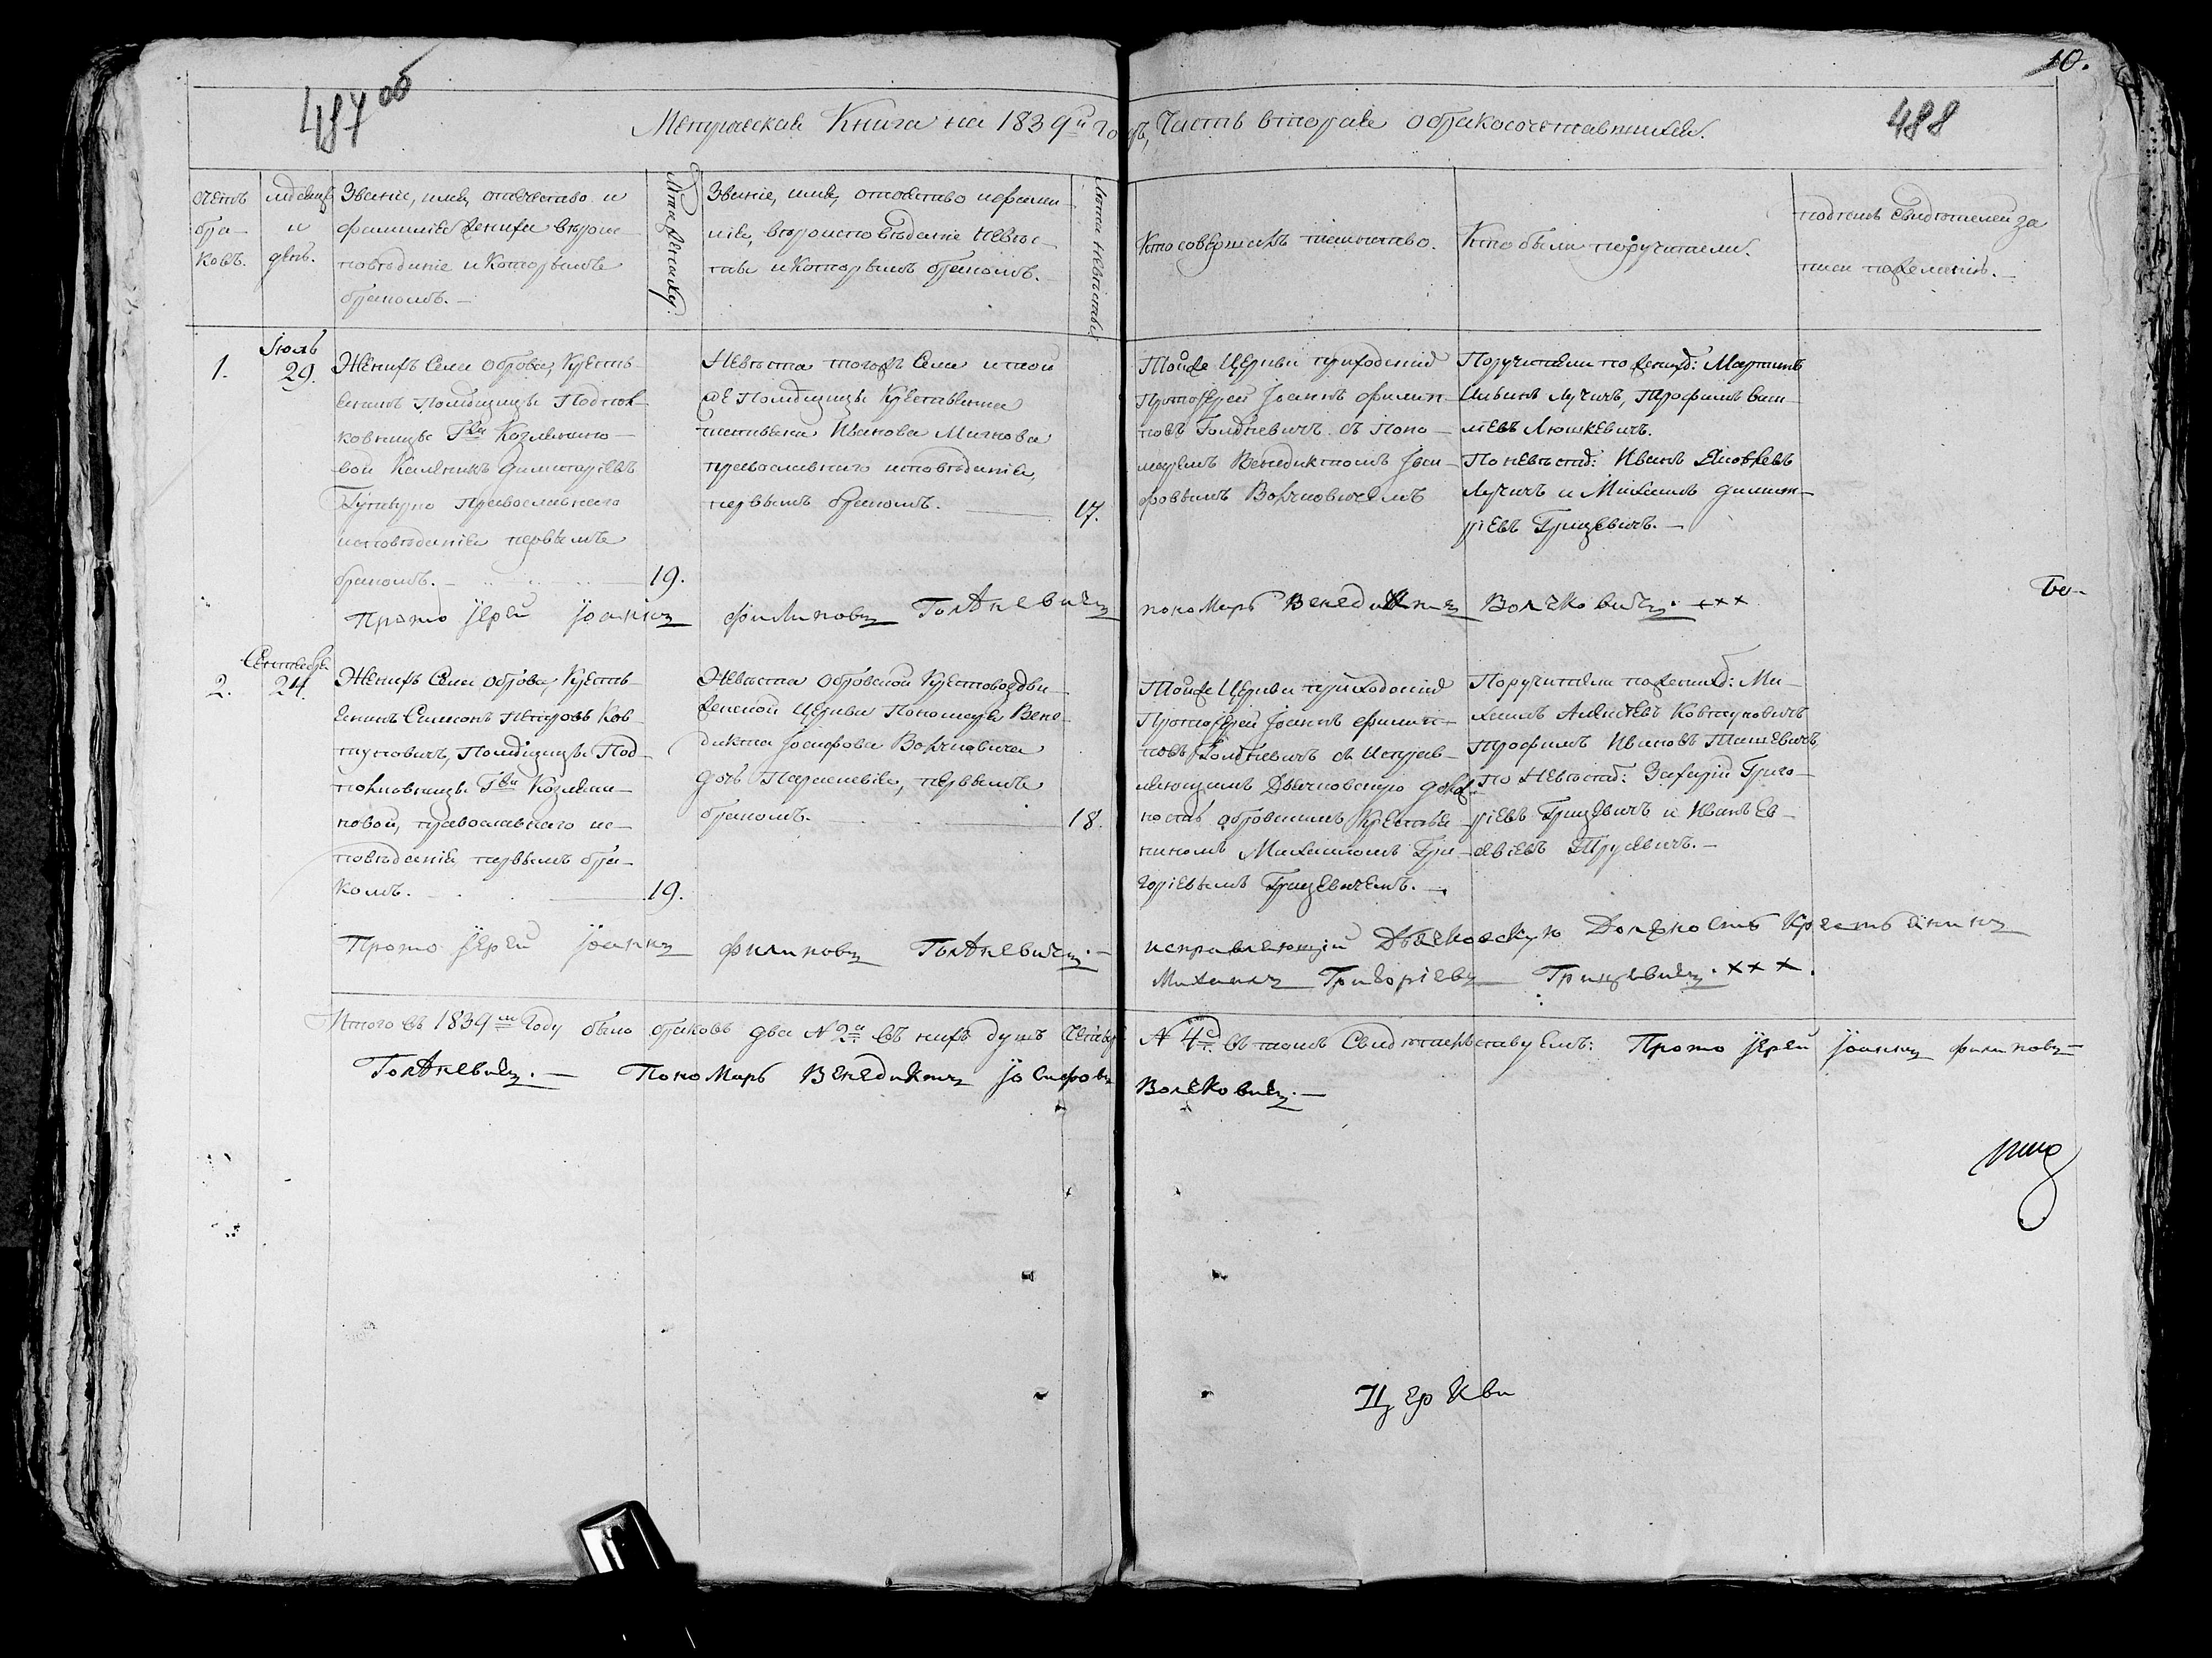 487 об
10.
488
Метрическая Книга на 1839й годъ, Часть вторая о бракосочетавшихся.
счетъ
бра-
ковъ.
мѣсяцъ
и
день.
Званіе, имя, отечество и
фамилія жениха вѣроис-
повѣданіе и которымъ
бракомъ. —
Лѣта жениху.
Званіе, имя, отечество и фами-
лія, вѣроисповѣданіе невѣс-
ты и которымъ бракомъ. —
Лѣта невѣсты.
Кто совершалъ таинство.
Кто были поручители.
подпись свидѣтелей за
писи по желанію. —
1.
Іюль
29.
Женихъ Села Оброва, Кресть-
янинъ Помѣщицы Подпол-
ковницы Гжи Козлянино-
вой Каленикъ Димитріевъ
Православнаго
исповѣданія первымъ
бракомъ. —
19.
Невѣста тогожъ Села и той
же Помѣщицы Крестьянка
Иванова
православнаго исповѣданія,
первымъ бракомъ. —
17.
Тойже Церкви приходскій
Протоіерей Іоаннъ Филип-
повъ Голдневичъ съ Поно-
маремъ Венедиктомъ Іоси-
фовымъ Волчковичемъ
Поручители по женихѣ: Мартинъ
Ильинъ Лучичъ, Трофимъ Васи-
ліевъ Люшкевичъ.
По невѣстѣ: Иванъ Яковлевъ
Лучичъ и Михаилъ Димит-
ріевъ Грицевичъ. —
Прото Іерей Іоаннъ Филиповъ Голдневичъ пономарь Венедиктъ Волчковичъ. +××
Бо-
2.
Сентябрь
24.
Женихъ Села Оброва, Кресть-
янинъ Симонъ Петровъ Ков-
туновичъ, Помѣщицы Под-
полковницы Гжи Козляни-
новой, православнаго ис-
повѣданія первымъ бра-
комъ. —
19.
Невѣста Обровской Крестовоздви-
женской Церкви Пономаря Вене-
дикта Іосифова Волчковича
дочь Параскевія, первымъ
бракомъ. —
18.
Тойже Церкви приходскій
Протоіерей Іоаннъ Филип-
повъ Голдневичъ съ Исправ-
ляющимъ Дьячковскую долж-
ность обровскимъ Крестья-
ниномъ Михаиломъ Гри-
горіевымъ Грицевичемъ. —
Поручители по женихѣ: Ми-
хаилъ Алексѣевъ Ковтуновичъ
Трофимъ Ивановъ
по Невѣстѣ: Захарій Григо-
ріевъ Грицевичъ и Иванъ Ев-
—
Прото Іерей Іоаннъ Филиповъ Голдневичъ. — исправляющій Дьячковскую Должность Крестьянинъ
Михаилъ Григоріевъ Грицевичъ. ×××.
Итого въ 1839м Году было браковъ два N 2а въ нихъ душъ четыре N 4е въ томъ Свидѣтельствуемъ: Прото Іерей Іоаннъ Филиповъ
Голдневичъ. — Пономарь Венедиктъ Іосифовъ Волчковичъ. —
Церкви